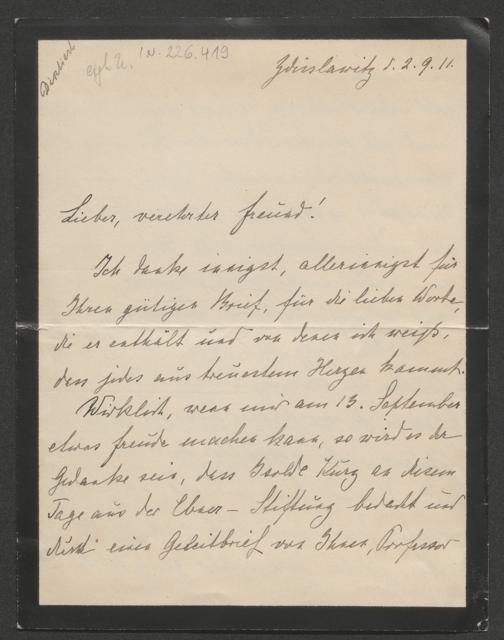 Diktiert
I.N. 226.419
Zdislawitz d. 2. 9. 11.
Lieber, verehrter Freund!
Ich danke innigst, allerinnigst für
Ihren gütigen Brief, für die lieben Worte,
die er enthält und von denen ich weiß,
dass jedes aus treuestem Herzen kommt.
Wirklich, wenn mir am 13. September
etwas Freude machen kann, so wird es der
Gedanke sein, dass Isolde Kurz an diesem
Tage aus der Ebner-Stiftung bedacht und
durch einen Geleitbrief von Ihnen, Professor